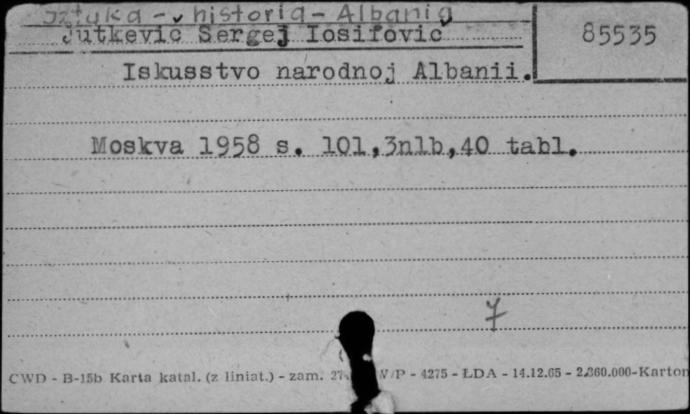 sztuka - historia - Albania
Jutkevič Sergej Iosifovič
85535
Iskusstvo narodnoj Albanii.
Moskva 1958 s. 101,3nlb,40 tabl.
7
CWD - B-15b Karta katal. (z liniat.) - zam. W/P - 4275 - ŁDA - 14.12.65 - 2.360.000-Karton